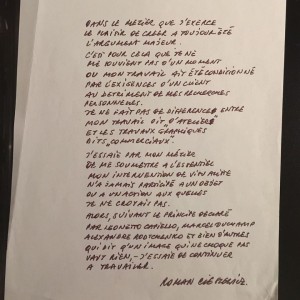 DANS LE MÉTIER QUE J'EXERCE
LE PLAISIR DE CRÉER A TOUJOUR ÉTÉ
L'ARGUMENT MAJEUR.
C'EST POUR CELA QUE JE NE
ME SOUVIENT PAS D'UN MOMENT
OU MON TRAVAIL AIT ÉTÉ CONDITIONNÉ
PAR L'EXIGENCES D'UN CLIENT
AU DETRIMENT DE MES RECHERCHES
PERSONNELLES.
JE NE FAIT PAS DE DIFFERENCE ENTRE
MON TRAVAIL DIT "D'ATELIER"
ET LES TRAVAUX GRAPHIQUES
DITS "COMMERCIAUX".
J'ESSAIE PAR MON MÉTIER
DE ME SOUMETTRE A L'ESSENTIEL
MON INTERVENTION DE VISUALISTE
N'A JAMAIS PARTICIPÉ A UN OBJET
OU A UN ACTION AUX QUELLES
JE NE CROYAIS PAS.
ALORS, SUIVANT LE PRINCIPE DECLARÉ
PAR LEONETTO CAPIELLO, MARCEL DUCHAMP
ALEXANDRE RODTCHENKO ET BIEN D'AUTRES
QUI DIT QU'UN IMAGE QUI NE CHOQUE PAS
VAUT RIEN, – J'ESSAIE DE CONTINUER
A TRAVAILLER.
ROMAN CIEŚLEWICZ